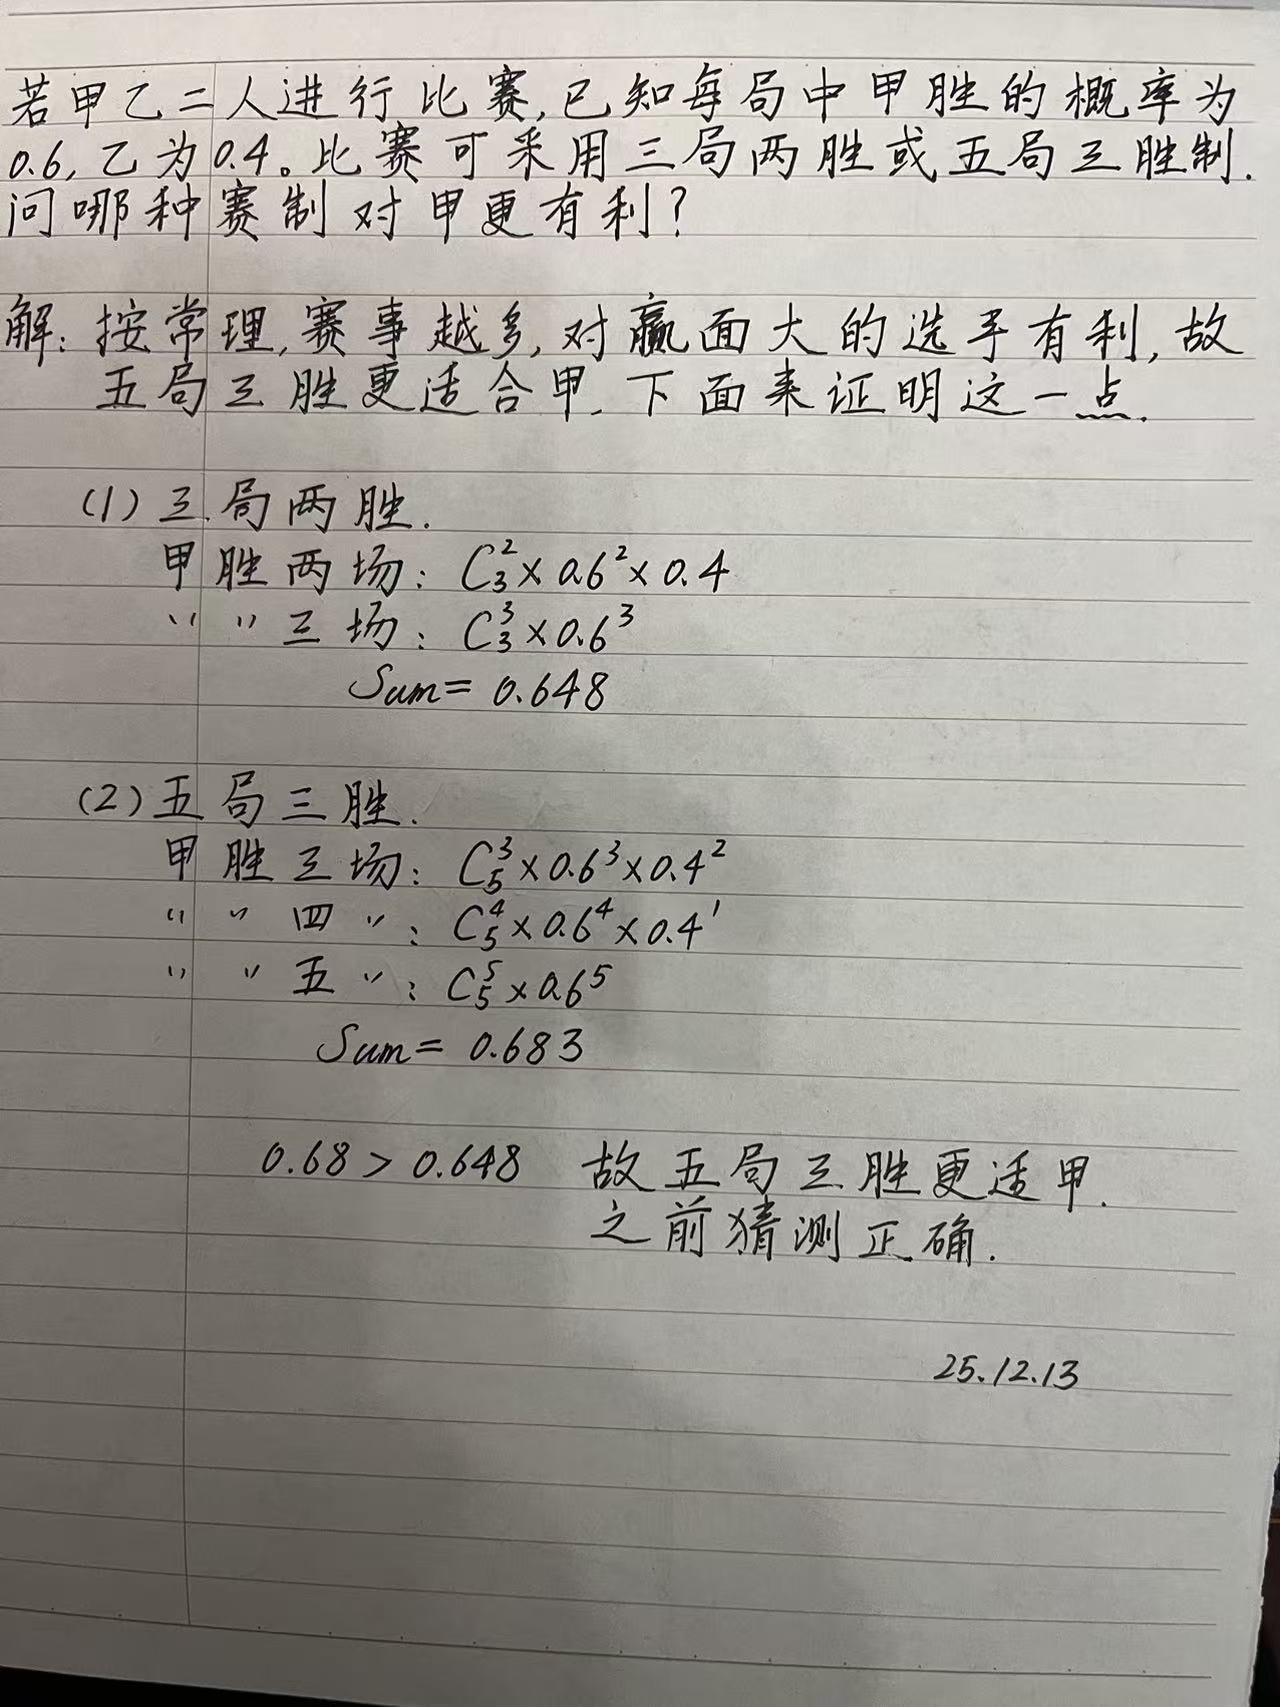 若甲乙二人进行比赛,已知每局中甲胜的概率为
0.6,乙为0.4。比赛可采用三局两胜或五局三胜制.
问哪种赛制对甲更有利?
解:按常理,赛事越多,对赢面大的选手有利,故
五局三胜更适合甲.下面来证明这一点.
(1)三局两胜.
甲胜两场: C₃²×0.6²×0.4
〃 〃 三场: C₃³×0.6³
Sum= 0.648
(2)五局三胜.
甲胜三场: C₅³×0.6³×0.4²
〃 〃 四 〃: C₅⁴×0.6⁴×0.4¹
〃 〃 五 〃: C₅⁵×0.6⁵
Sum= 0.683
0.68>0.648 故五局三胜更适甲.
之前猜测正确.
25.12.13